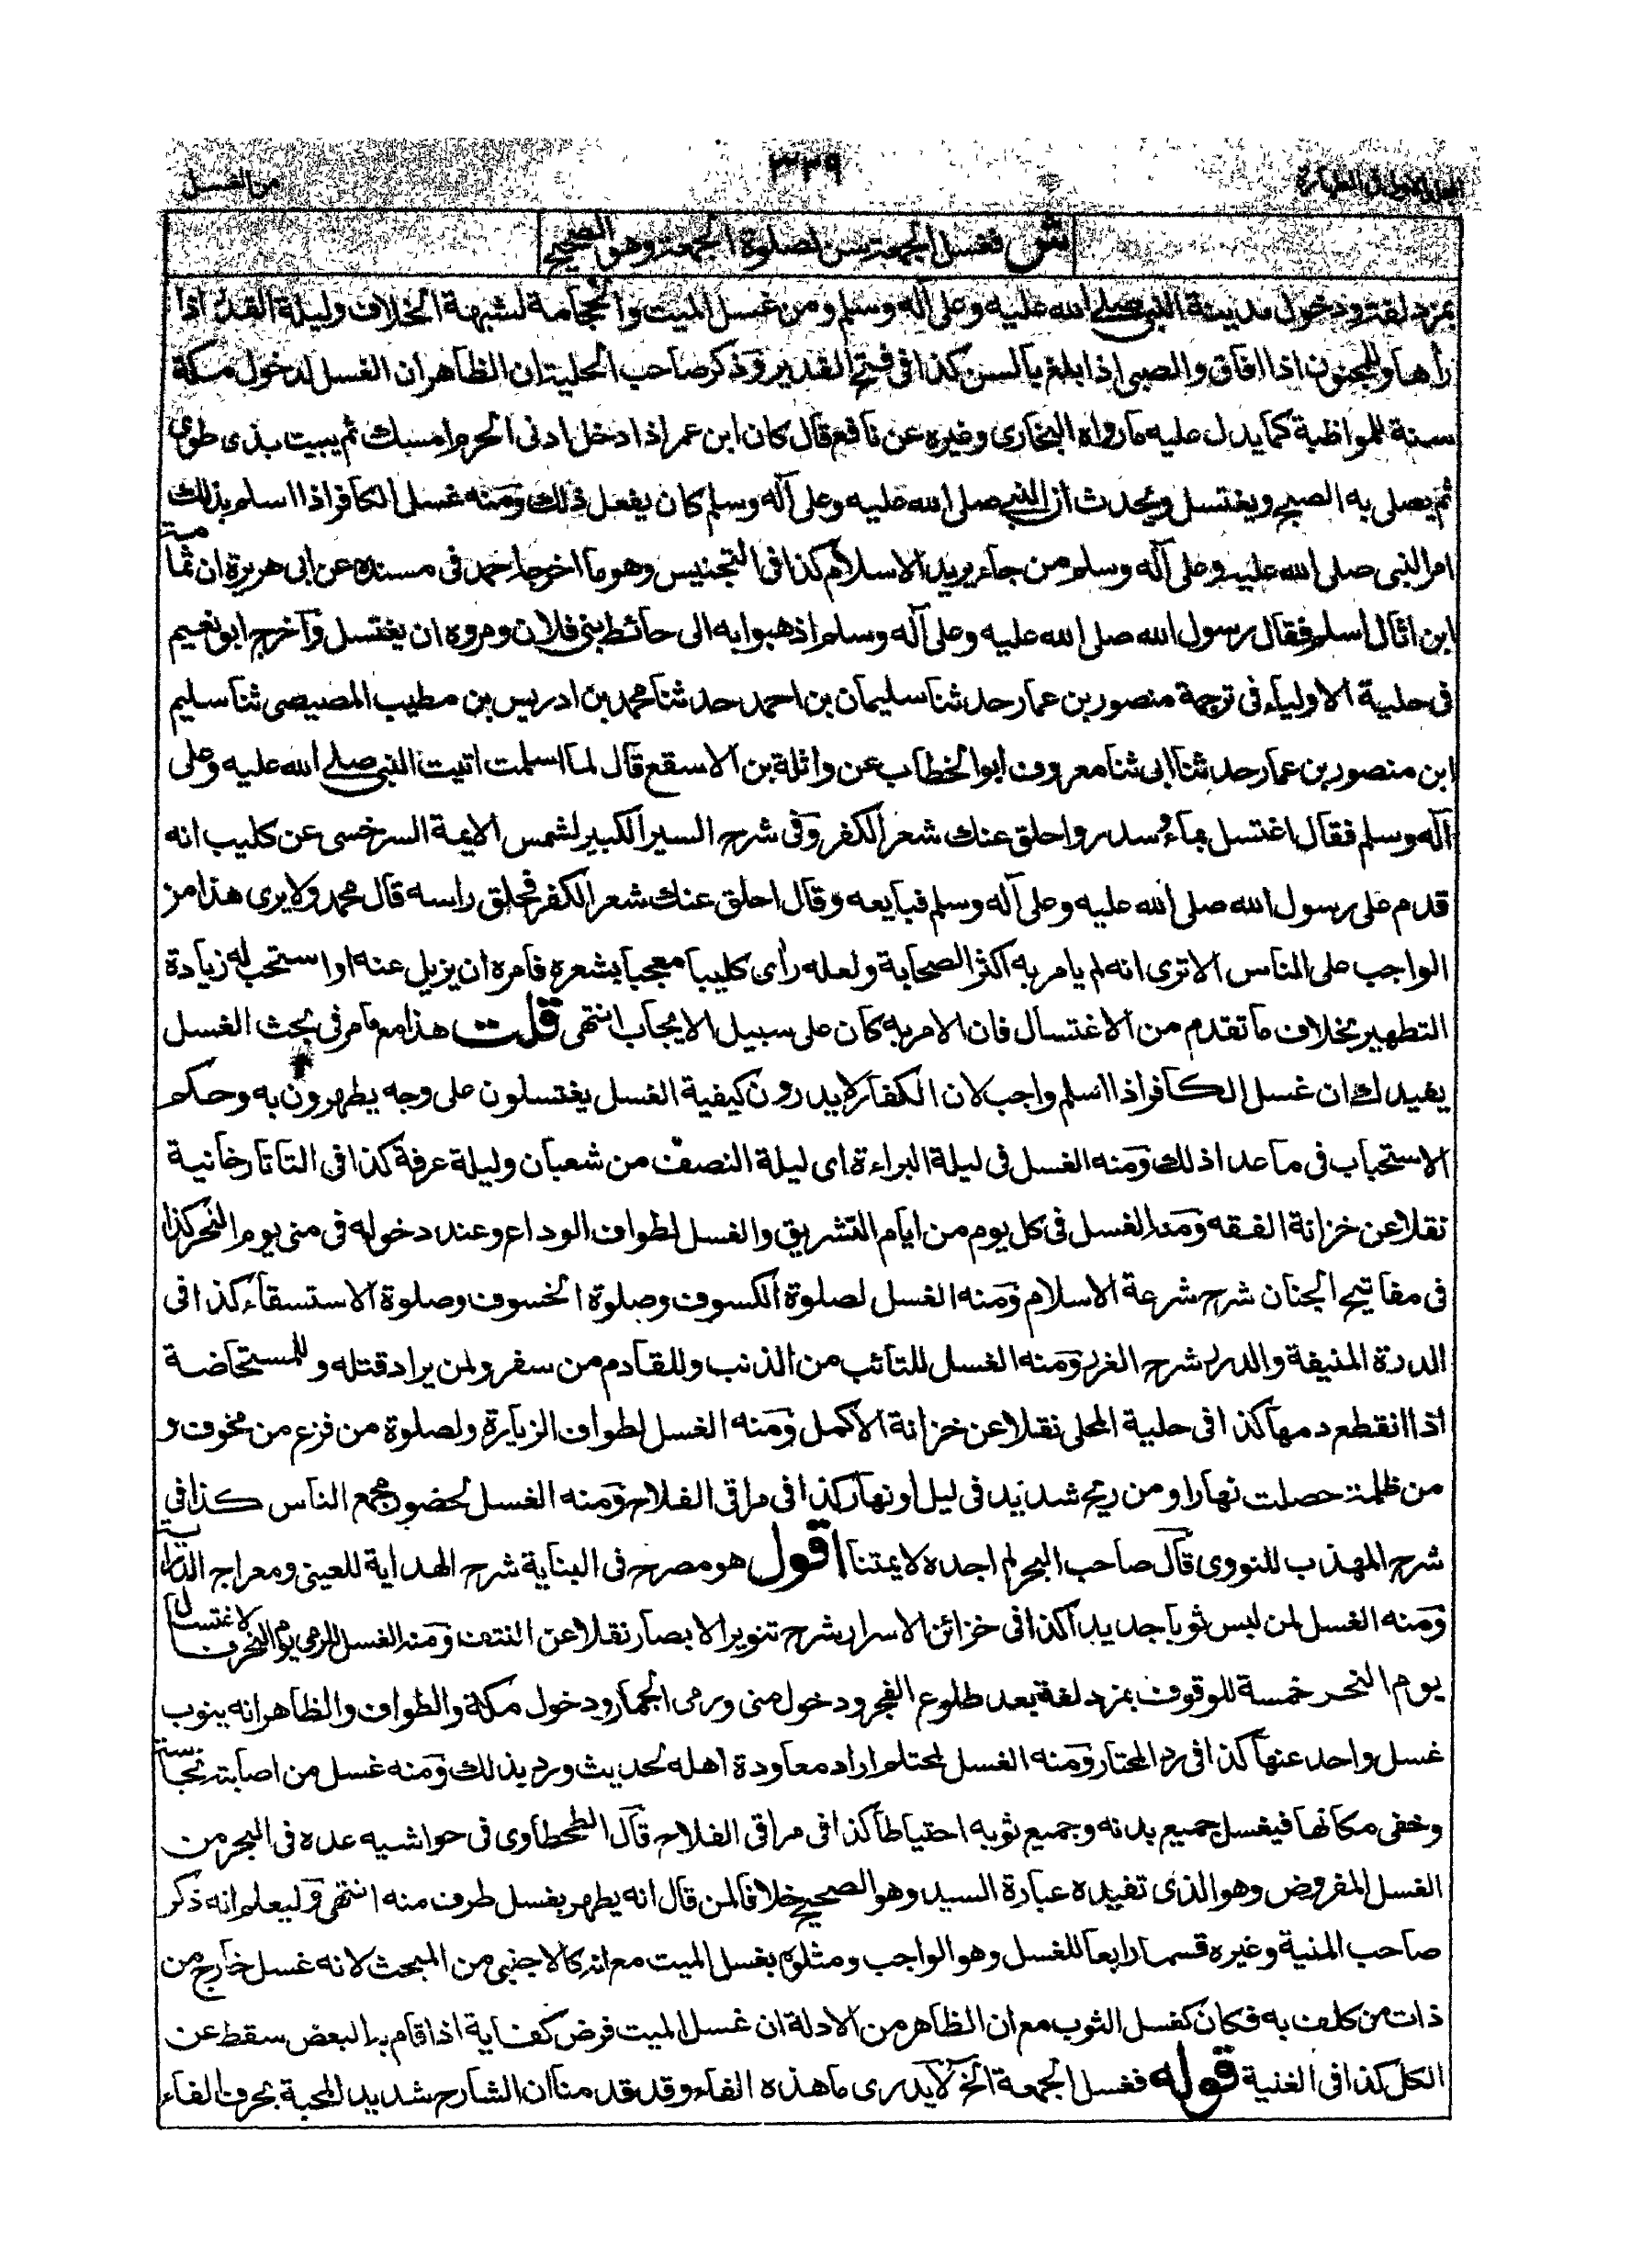 الجزء الاول فی الطهارة ٣٣٩ من الغسل
ش فغسل الجمعة سن لصلوة الجمعة وهو الصحيح
بمزدلفة ودخول مدينة النبی صلی الله علیه وعلی آله وسلم ومن غسل المیت والحجامة لشبهة الخلاف ولیلة القدر اذا
رأها وللمجنون اذا افاق والصبی اذا بلغ بالسن کذا فی فتح القدیر وذکر صاحب الحلیة ان الظاهر ان الغسل لدخول مکة
سنة للمواظبة کما یدل علیه ما رواه البخاری وغیره عن نافع قال کان ابن عمر اذا دخل ادنی الحرم امسک ثم یبیت بذی طوی
ثم یصلی به الصبح ویغتسل ویحدث ان النبی صلی الله علیه وعلی آله وسلم کان یفعل ذلک ومنه غسل الکافر اذا اسلم بذلک
امر النبی صلی الله علیه وعلی آله وسلم من جاء یرید الاسلام کذا فی التجنیس وهو ما اخرجه احمد فی مسنده عن ابی هریرة ان ثمامة
ابن اثال اسلم فقال رسول الله صلی الله علیه وعلی آله وسلم اذهبوا به الی حائط بنی فلان ومروه ان یغتسل وآخرج ابو نعیم
فی حلیة الاولیاء فی ترجمة منصور بن عمار حدثنا سلیمان بن احمد حدثنا محمد بن ادریس بن مطیب المصیصی ثنا سلیم
ابن منصور بن عمار حدثنا ابی ثنا معروف ابو الخطاب عن واثلة بن الاسقع قال لما اسلمت اتیت النبی صلی الله علیه وعلی
آله وسلم فقال اغتسل بماء وسدر واحلق عنک شعر الکفر وفی شرح السیر الکبیر لشمس الایمة السرخسی عن کلیب انه
قدم علی رسول الله صلی الله علیه وعلی آله وسلم فبایعه وقال احلق عنک شعر الکفر فحلق راسه قال محمد ولا یری هذا من
الواجب علی الناس الا تری انه لم یامر به اکثر الصحابة ولعله رأی کلیبا معجبا بشعره فامره ان یزیل عنه او استحب له زیادة
التطهیر بخلاف ما تقدم من الاغتسال فان الامر به کان علی سبیل الایجاب انتهی قلت هذا مع ما مر فی بحث الغسل
یفیدک ان غسل الکافر اذا اسلم واجب لان الکفار لا یدرون کیفیة الغسل یغتسلون علی وجه یطهرون به وحکم
الاستحباب فی ما عدا ذلک ومنه الغسل فی لیلة البراءة ای لیلة النصف من شعبان ولیلة عرفة کذا فی التاتارخانیة
نقلا عن خزانة الفقه ومنه الغسل فی کل یوم من ایام التشریق والغسل لطواف الوداع وعند دخوله فی منی یوم النحر کذا
فی مفاتیح الجنان شرح شرعة الاسلام ومنه الغسل لصلوة الکسوف وصلوة الخسوف وصلوة الاستسقاء کذا فی
الدرة المنیفة والدرر شرح الغرر ومنه الغسل للتائب من الذنب وللقادم من سفر ولمن یراد قتله وللمستحاضة
اذا انقطع دمها کذا فی حلیة المحلی نقلا عن خزانة الاکمل ومنه الغسل لطواف الزیارة ولصلوة من فزع من مخوف و
من ظلمة حصلت نهارا ومن ریح شدید فی لیل او نهار کذا فی مراقی الفلاح ومنه الغسل لحضور مجمع الناس کذا فی
شرح المهذب للنووی قال صاحب البحر لم اجده لایمتنا اقول هو مصرح فی البنایة شرح الهدایة للعینی ومعراج الدرایة
ومنه الغسل لمن لبس ثوبا جدیدا کذا فی خزائن الاسرار شرح تنویر الابصار نقلا عن النتف ومنه الغسل للرمی یوم النحر فالاغتسال
یوم النحر خمسة للوقوف بمزدلفة بعد طلوع الفجر ودخول منی ورمی الجمار ودخول مکة والطواف والظاهر انه ینوب
غسل واحد عنها کذا فی رد المحتار ومنه الغسل لمحتلم اراد معاودة اهله لحدیث ورد بذلک ومنه غسل من اصابته نجاسة
وخفی مکانها فیغسل جمیع بدنه وجمیع ثوبه احتیاطا کذا فی مراقی الفلاح قال الطحطاوی فی حواشیه عده فی البحر من
الغسل المفروض وهو الذی تفیده عبارة السید وهو الصحیح خلافا لمن قال انه یطهر بغسل طرف منه انتهی ولیعلم انه ذکر
صاحب المنیة وغیره قسما رابعا للغسل وهو الواجب ومثلوه بغسل المیت مع انه کالاجنبی من المبحث لانه غسل خارج من
ذات من کلف به فکان کغسل الثوب مع ان الظاهر من الادلة ان غسل المیت فرض کفایة اذا قام به البعض سقط عن
الکل کذا فی الغنیة قوله فغسل الجمعة الخ لا یدری ما هذه الفاء وقد قدمنا ان الشارح شدید المحبة بحرف الفاء